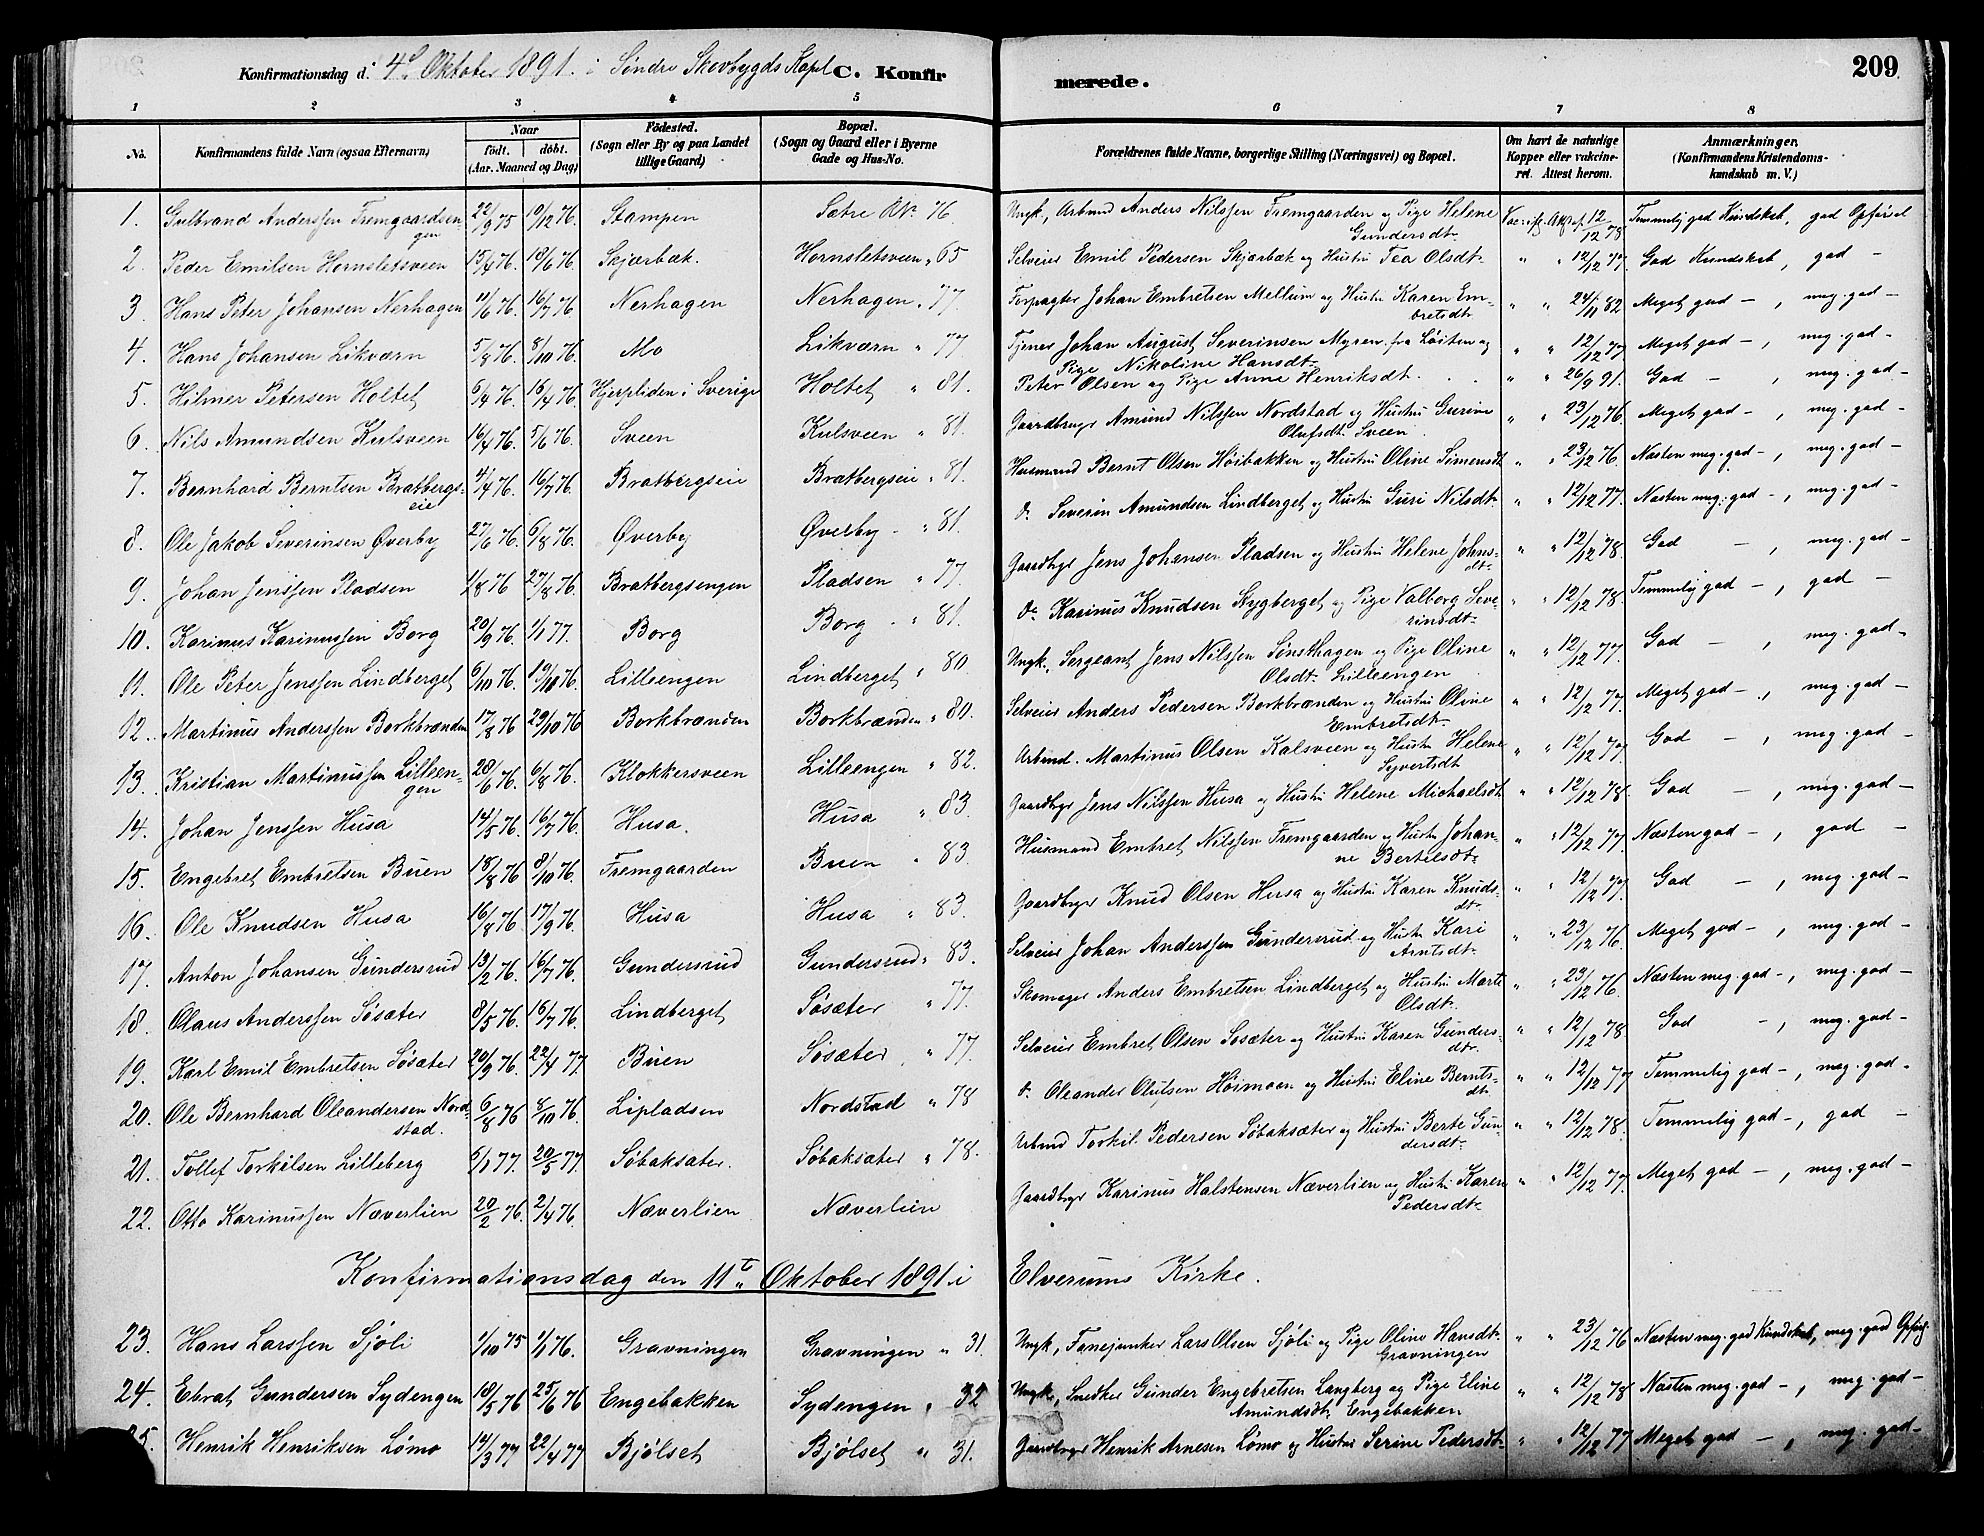 209
Konfirmationsdag d. 4de Oktober 1891. i Søndre Skovbygds Kapel C. Konfirmerede.
1 2 3 4 5 6 7 8
No. Konfirmandens fulde Navn (ogsaa Efternavn) Naar født. døbt. (Aar. Maaned og Dag) Fødested. (Sogn eller By og paa Landet tillige Gaard) Bopæl. (Sogn og Gaard eller i Byerne Gade og Hus-No. Forældrenes fulde Navne, borgerlige Stilling (Næringsvei) og Bopæl. Om havt de naturlige Kopper eller vaccineret. Attest herom. Anmærkninger. (Konfirmandens Kristendomskundskab m. V.)
1. Gulbrand Anderssen Fremgaardsengen 22/9 75 19/12 76. Stampen Sætre 76. Ungk, Arbmd Anders Nilssen Fremgaarden og Pige Helene Gundersdtr 12/12 78 Temmelig god Kundskab, god Opførsel
2. Peder Emilsen Hornsletsveen 15/4 76. 18/6 76. Skjærbæk. Hornsletsveen „ 65 Selveier Emil Pedersen Skjærbæk og Hustru Tea Olsdtr „ „ 12/12 77. God Kundskab, god —
3. Hans Peter Johansen Nerhagen 11/6 76. 16/7 76 Nerhagen Nerhagen „ 77. Forpagter Johan Embretsen Mellum og Hustru Karen Embretsdtr „ „ 24/11 82 Meget god —, meg. god —
4. Hans Johansen Likværn 5/8 76. 8/10 76. Mo Likværn „ 77 Tjener Johan August Severinsen Myren fra Løiten og Pige Nikoline Hansdtr „ „ 12/12 77 Meget god —, meg. god —
5. Hilmer Petersen Holtet 6/4 76. 16/4 76. Hjerpliden i Sverige Holtet „ 81. Peter Olsen og Pige Anne Henriksdt. „ „ 26/9 91. God —, meg. god —
6. Nils Amundsen Kulsveen 16/4 76. 5/6 76. Sveen Kulsveen „ 81. Gaardbrugr Amund Nilssen Nordstad og Hustru Gurine Olufsdtr Sveen. „ „ 23/12 76. Meget god —, meg. god —
7. Bernhard Berntsen Bratbergseie 4/4 76. 16/7 76. Bratbergseie Bratbergseie „ 81. Husmand Bernt Olsen Høibakken og Hustru Oline Simensdt „ „ 23/12 76. Næsten meg. god —, meg. god —
8. Ole Jakob Severinsen Øverby 27/6 76. 6/8 76. Øverby Øverby „ 81. do Severin Amundsen Lindberget og Hustru Guri Nilsdtr „ „ 12/12 77. Næsten meg. god —, meg. god —
9. Johan Jenssen Pladsen 1/8 76 27/8 76. Bratbergsengen Pladsen „ 77. Gaardbrgr Jens Johansen Pladsen og Hustru Helene Johnsdtr „ „ 12/12 78. God —, meg. god —
10. Karinus Karinussen Borg 20/9 76. 1/1 77. Borg Borg „ 81. do Karinus Knudsen Stygberget og Pige Valborg Severinsdtr „ „ 12/12 78. Temmelig god —, god —
11. Ole Peter Jenssen Lindberget 6/10 76. 19/11 76. Lilleengen Lindberget „ 80 Ungk. Sergeant Jens Nilssen Sønsthagen og Pige Oline Olsdtr Lilleengen „ „ 12/12 77. God —, meg. god —
12. Martinus Anderssen Borkbrænden 17/8 76 29/10 76. Borkbrænden Borkbrænden „ 80. Selveier Anders Pedersen Borkbrænden og Hustru Oline Embretsdtr „ „ 12/12 77. Meget god —, meg. god —
13. Kristian Martinussen Lilleengen 28/6 76. 6/8 76. Klokkersveen Lilleengen „ 82. Arbmd. Martinus Olsen Kalsveen og Hustr Helene Syvertsdt „ „ 12/12 77. God —, meg. god —
14. Johan Jenssen Husa 14/5 76. 16/7 76. Husa. Husa „ 83. Gaardbrgr Jens Nilssen Husa og Hustru Helene Michaelsdt „ „ 12/12 78. God —, meg. god —
15. Engebret Embretsen Buen 18/8 76 8/10 76. Fremgaarden Buen „ 83. Husmand Embret Nilssen Fremgaarden og Hustr Johanne Bertelsdtr „ „ 12/12 77. Næsten god —, god —
16. Ole Knudsen Husa 16/8 76. 17/9 76. Husa Husa „ 83. Gaardbrgr Knud Olsen Husa og Hustru Karen Knudsdtr „ „ 12/12 77. God —, meg. god —
17. Anton Johansen Gundersrud 13/2 76. 16/7 76. Gundersrud Gundersrud „ 83. Selveier Johan Anderssen Gundersrud og Hustr Kari Arntsdtr „ „ 23/12 76. Meget god —, meg. god —
18. Olaus Anderssen Søsæter 8/5 76. 16/7 76. Lindberget Søsæter „ 77 Skomager Anders Embretsen Lindberget og Hustru Marte Olsdtr „ „ 23/12 76. Næsten meg. god —, meg. god —
19. Karl Emil Embretsen Søsæter 20/9 76. 22/4 77. Buen Søsæter „ 77. Selveier Embret Olsen Søsæter og Hustru Karen Gundersdtr. „ „ 12/12 78. God —, meg. god —
20. Ole Bernhard Oleandersen Nordstad. 6/8 76 8/10 76. Lipladsen Nordstad „ 78 do Oleander Olufsen Høimoen og Hustru Eline Berntsdtr „ „ 12/12 77 Temmelig god —, meg. god —
21. Tollef Torkilsen Lilleberg 6/1 77. 20/5 77. Søbaksæter. Søbaksæter „ 78. Arbmd Torkil Pedersen Søbaksæter og Hustru Berte Gundersdtr „ „ 12/12 78. Temmelig god —, god —
22. Otto Karinussen Næverlien 20/2 76. 2/4 76. Næverlien Næverlien Gaardbrgr Karinus Halstensen Næverlien og Hustr Karen Pedersdtr „ „ 12/12 77. Meget god —, meg. god —
Konfirmationsdag den 11te Oktober 1891 i Elverums Kirke.
23. Hans Larssen Sjøli 1/10 75 1/1 76. Gravningen Gravningen „ 31. Ungk, Fanejunker Lars Olsen Sjøli og Pige Oline Hansdtr Gravningen „ „ 23/12 76 Næsten meg. god Kundskab, meg. god Opførs.
24. Ebrat Gundersen Sydengen 18/5 76 25/6 76 Engebakken Sydengen „ 32 Ungk, Snedker Gunder Engebretsen Langberg og Pige Eline Amundsdtr Engebakken „ „ 12/12 78 Næsten meg. god —, meg. god —
25. Henrik Henriksen Lømo 14/3 77 22/4 77 Bjølset Bjølset „ 31. Gaardbrgr Henrik Arnesen Lømo og Hustru Serine Pedersdtr „ „ 12/12 77 Meget god —, meg. god —